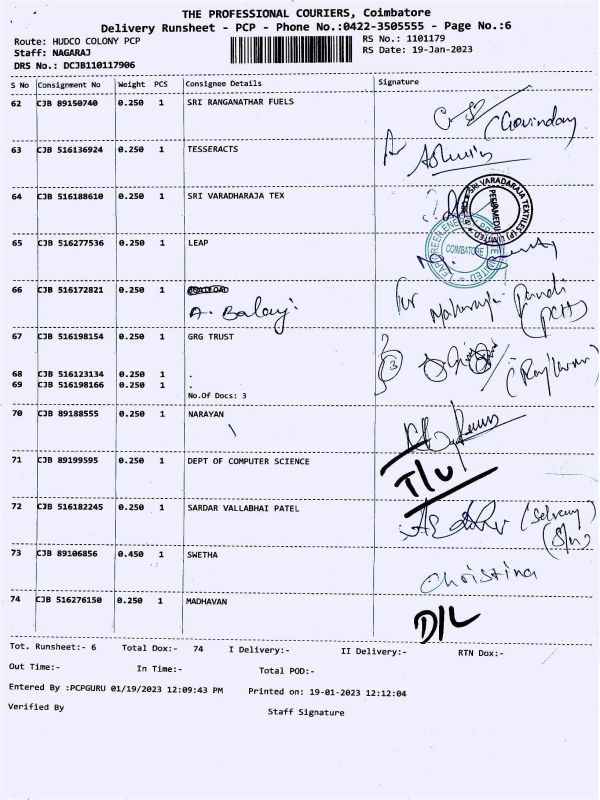 THE PROFESSIONAL COURIERS, Coimbatore
Delivery Runsheet - PCP - Phone No.:0422-3505555 - Page No.:6
Route: HUDCO COLONY PCP
RS No.: 1101179
Staff: NAGARAJ
RS Date: 19-Jan-2023
DRS No.: DCJB110117906
S No Consignment No Weight PCS Consignee Details Signature
62 CJB 89150740 0.250 1 SRI RANGANATHAR FUELS
(Govindan)
63 CJB 516136924 0.250 1 TESSERACTS
Ashwin
64 CJB 516188610 0.250 1 SRI VARADHARAJA TEX
SRI VARADARAJA TEXTILES (P) LIMITED
65 CJB 516277536 0.250 1 LEAP
LEAP GREEN ENERGY LIMITED
COIMBATORE
66 CJB 516172821 0.250 1
A. Balaji
for
67 CJB 516198154 0.250 1 GRG TRUST
3
68 CJB 516123134 0.250 1 .
69 CJB 516198166 0.250 1 .
No.Of Docs: 3
70 CJB 89188555 0.250 1 NARAYAN
71 CJB 89199595 0.250 1 DEPT OF COMPUTER SCIENCE
T/U
72 CJB 516182245 0.250 1 SARDAR VALLABHAI PATEL
73 CJB 89106856 0.450 1 SWETHA
Christina
74 CJB 516276150 0.250 1 MADHAVAN
D/L
Tot. Runsheet:- 6 Total Dox:- 74 I Delivery:- II Delivery:- RTN Dox:-
Out Time:- In Time:- Total POD:-
Entered By :PCPGURU 01/19/2023 12:09:43 PM Printed on: 19-01-2023 12:12:04
Verified By Staff Signature